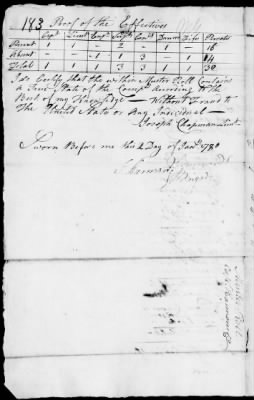 183 Proof of the Effectives
Capt Lieut Ens Serjt Corpl Drum Fife Privats
Present 1 1 - 2 - 1 - 16
Absent - - 1 1 3 - 1 14
Total 1 1 1 3 3 1 1 30
I do Certify that the within Muster Roll Contains
a True State of the Compy according to the
Best of my Knowledge - Without Fraud to
The United States or Any Individual -
Joseph Chapman Lieut
Sworn Before me this 2 Day of Jany 1780